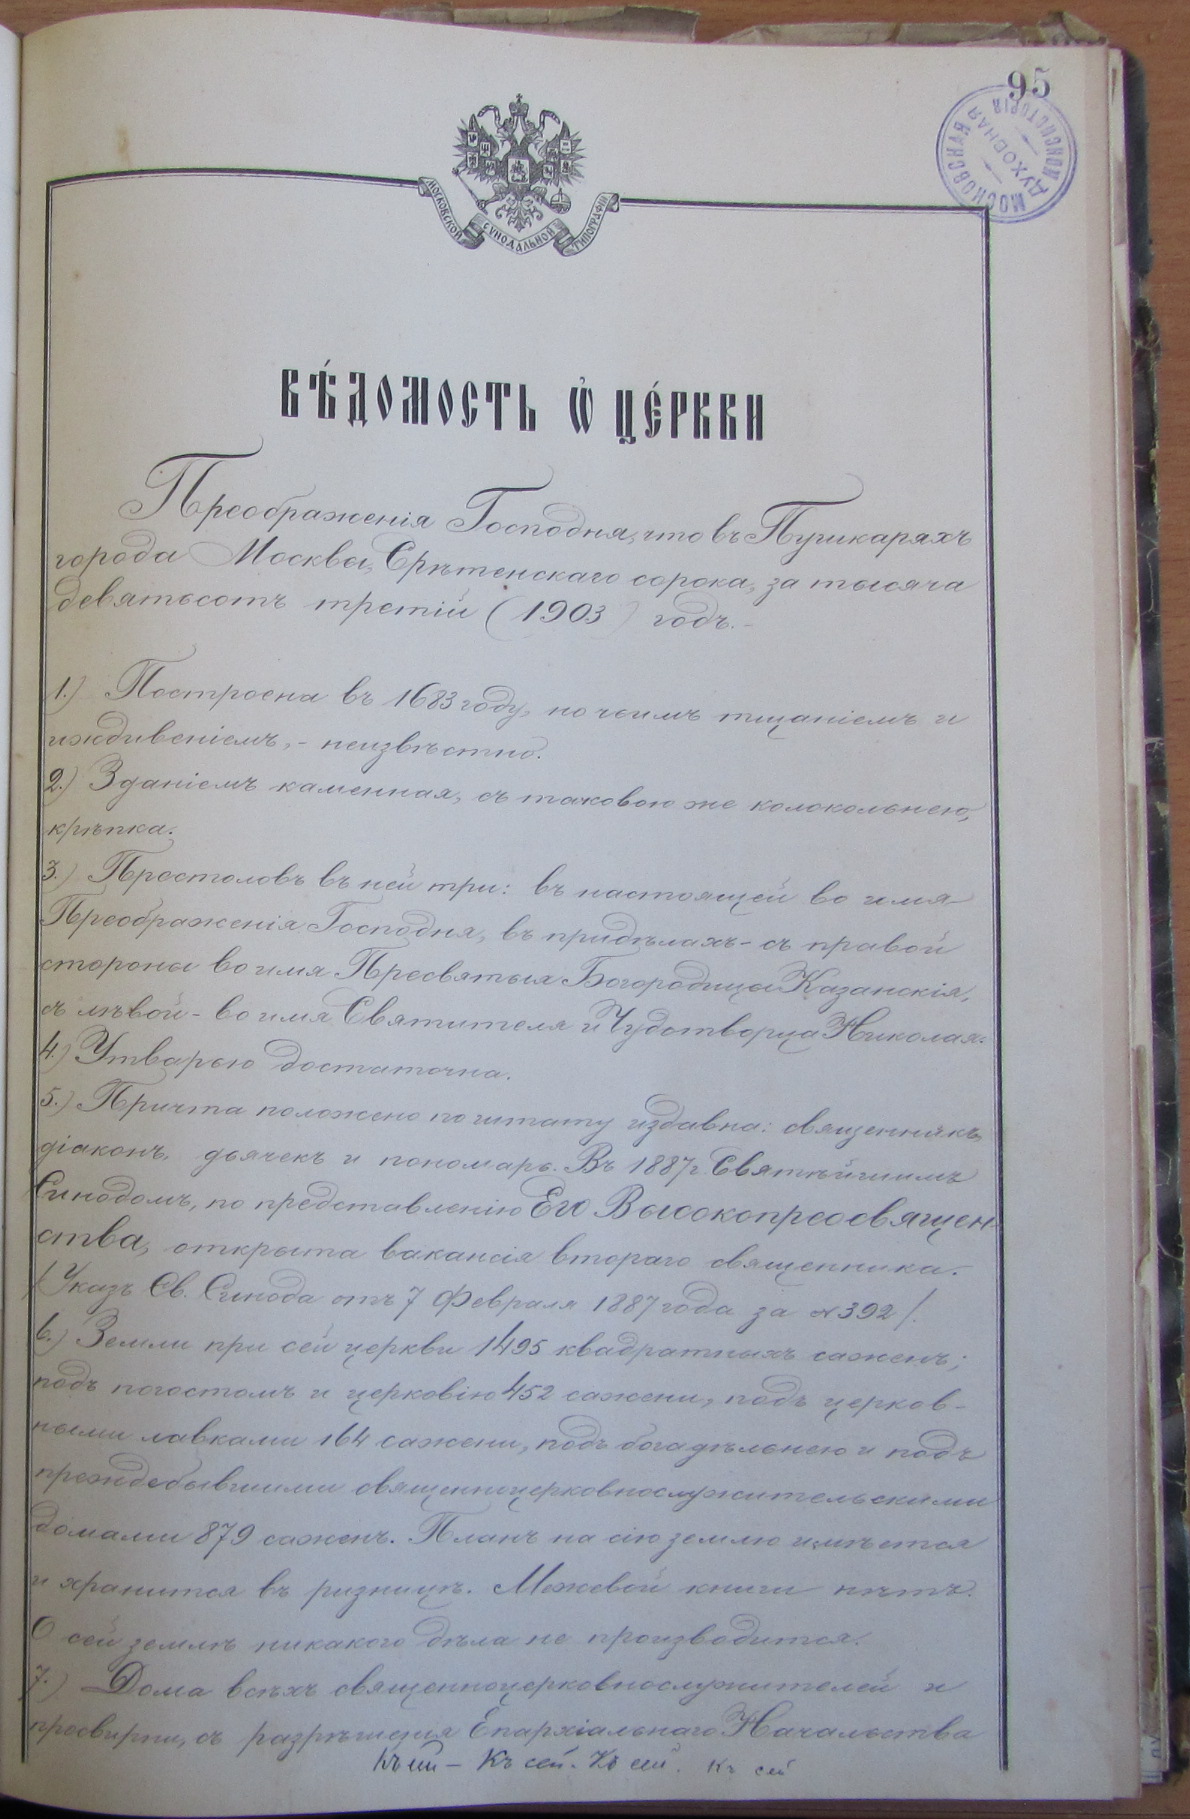 95
МОСКОВСКАЯ ДУХОВНАЯ КОНСИСТОРІЯ
МОСКОВСКОЙ СУНОДАЛЬНОЙ ТИПОГРАФІИ
ВѢ́ДОМОСТЬ Ѡ҆ ЦЕ́РКВИ
Преображенія Господня, что въ Пушкаряхъ
города Москвы, Срѣтенскаго сорока, за тысяча
девятьсотъ третій (1903) годъ.-
1.) Построена въ 1683 году, но чьимъ тщаніемъ и
иждивеніемъ,- неизвѣстно.
2.) Зданіемъ каменная, съ таковою же колокольнею,
крѣпка.
3.) Престоловъ въ ней три: въ настоящей во имя
Преображенія Господня, въ придѣлахъ- съ правой
стороны во имя Пресвятыя Богородицы Казанскія,
съ лѣвой- во имя Святителя и Чудотворца Николая.
4.) Утварью достаточна.
5.) Причта положено по штату издавна: священникъ,
діаконъ, дьячекъ и пономарь. Въ 1887 г. Святѣйшимъ
Синодомъ, по представленію Его Высокопреосвящен-
ства, открыта вакансія втораго священника.
/Указъ Св. Синода отъ 7 Февраля 1887 года за № 392/.
6.) Земли при сей церкви 1495 квадратныхъ саженъ;
подъ погостомъ и церковію 452 сажени, подъ церков-
ными лавками 164 сажени, подъ богадѣльнею и подъ
преждебывшими священноцерковнослужительскими
домами 879 саженъ. Планъ на сію землю имѣется
и хранится въ ризницѣ. Межевой книги нѣтъ.
О сей землѣ никакого дѣла не производится.
7.) Дома всѣхъ священноцерковнослужителей и
просвирни, съ разрѣшенія Епархіальнаго Начальства
Къ сей. Къ сей. Къ сей